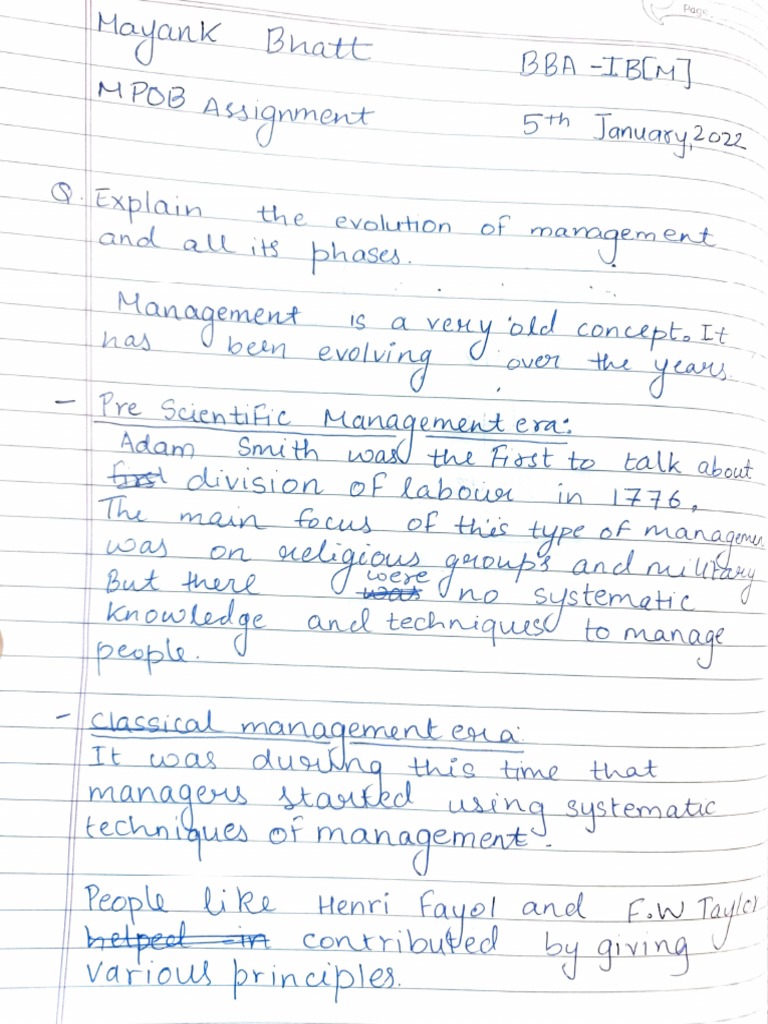 Page
Mayank Bhatt
BBA -IB[M]
MPOB Assignment
5th January, 2022
Q. Explain the evolution of management
and all its phases.
Management is a very old concept. It
has been evolving over the years.
- Pre Scientific Management era:
Adam Smith was the First to talk about
first division of labour in 1776.
The main focus of this type of managemen
was on religious groups and military
But there were no systematic
was
Knowledge and techniques to manage
people.
- Classical management era:
It was during this time that
managers started using systematic
techniques of management.
People like Henri Fayol and F.W Taylor
helped in contributed by giving
various principles.